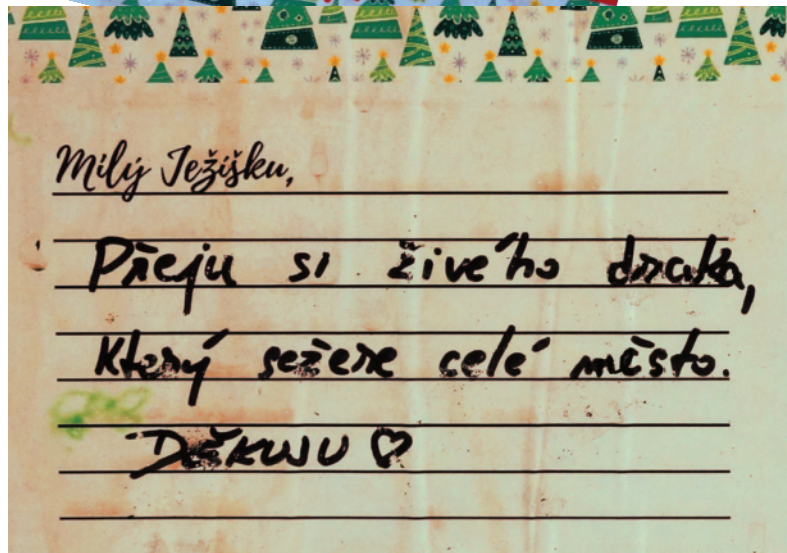 Milý Ježíšku,
Přeju si živého draka,
Který sežere celé město.
Děkuju ♡